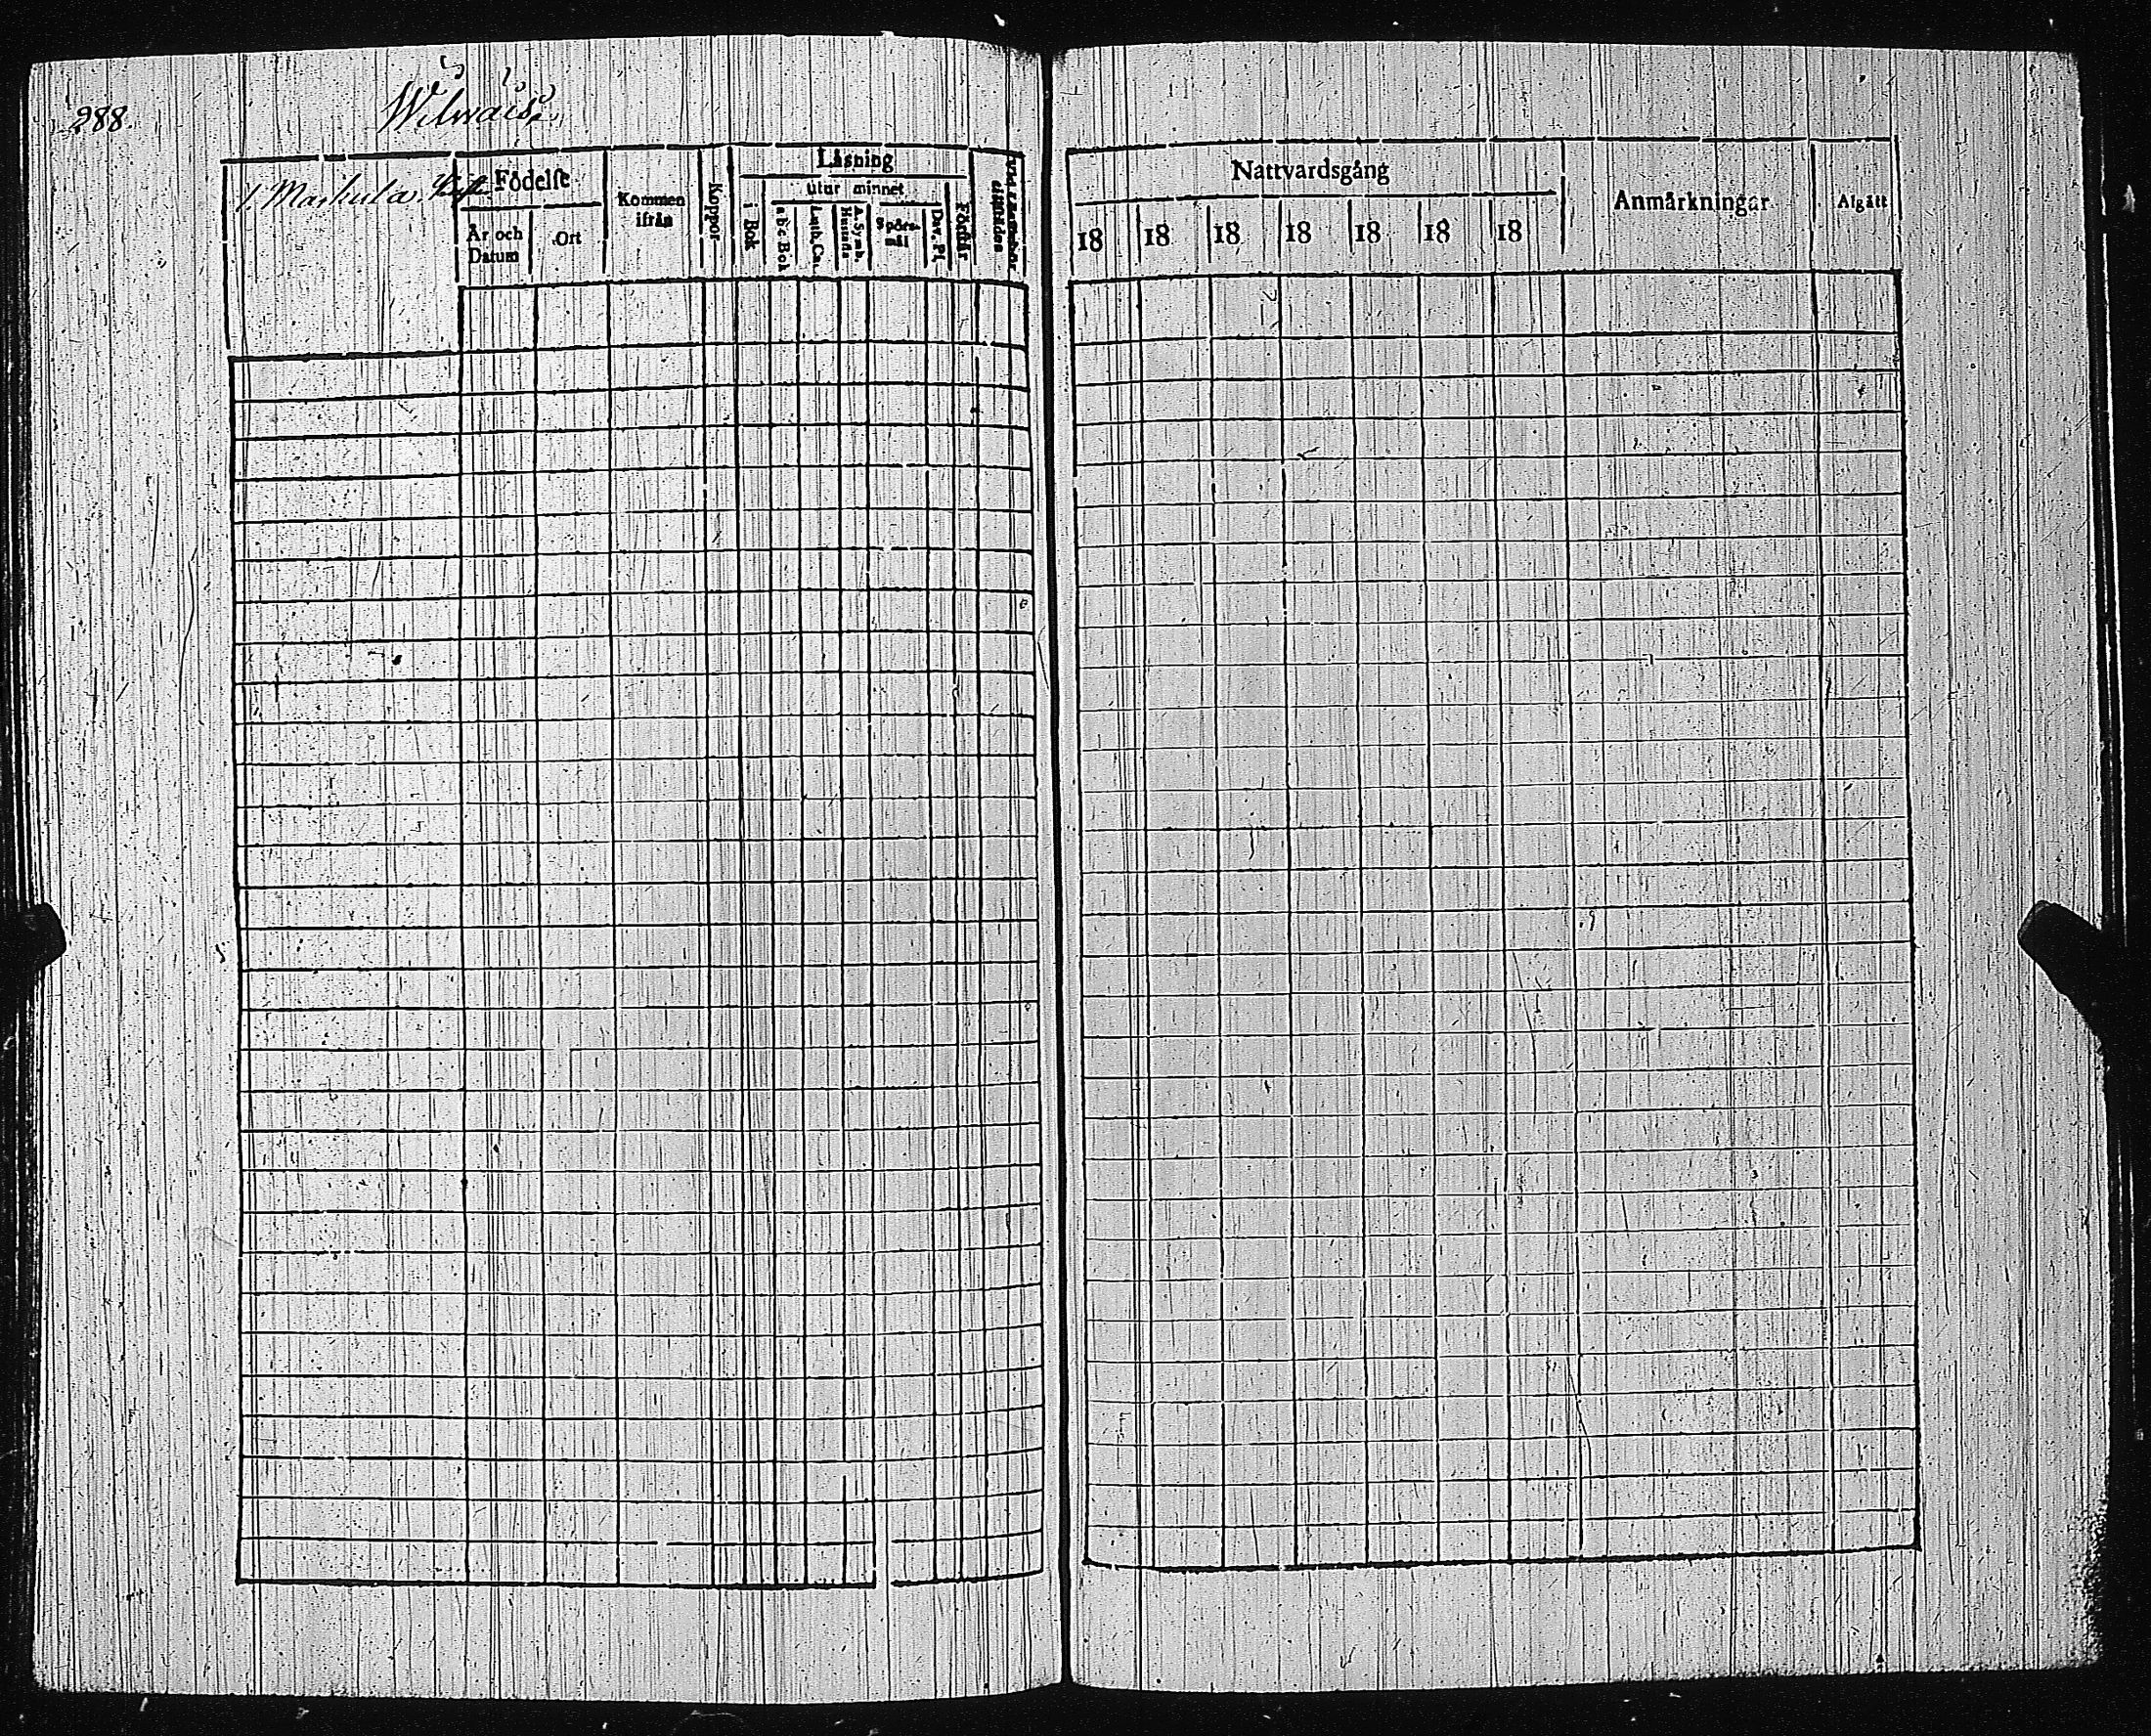 288.
Wilwais.
1. Markula
Födelse
År och Datum
Ort
Kommen ifrån
Koppor
Läsning
i Bok
utur minnet
a b c Bok
Luth. Ca.
A. Symb.
Hustafla
Spörsmål
Dav. Ps.
Förstår
Nattvardsgång
18 18 18 18 18 18 18
Anmärkningar
Afgått